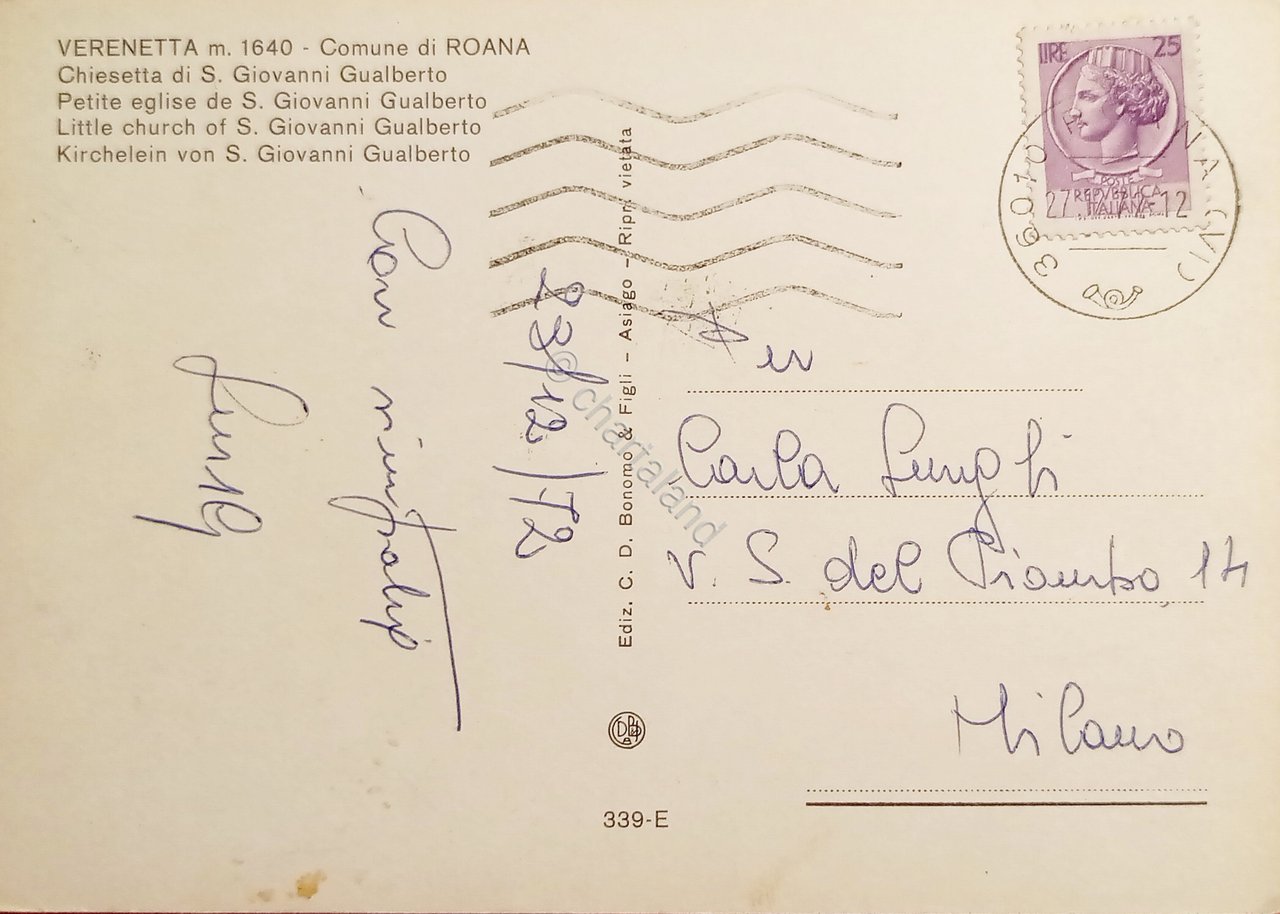 VERENETTA m. 1640 - Comune di ROANA
Chiesetta di S. Giovanni Gualberto
Petite eglise de S. Giovanni Gualberto
Little church of S. Giovanni Gualberto
Kirchelein von S. Giovanni Gualberto
LIRE 25
POSTE
REPVBBLICA
ITALIANA
36010
27 12
23/12/72
Con simpatia
Per
Carla Lunghi
V. S. del Piombo 14
Milano
Ediz. C. D. Bonomo & Figli - Asiago - Ripr. vietata
© chartaland
339-E